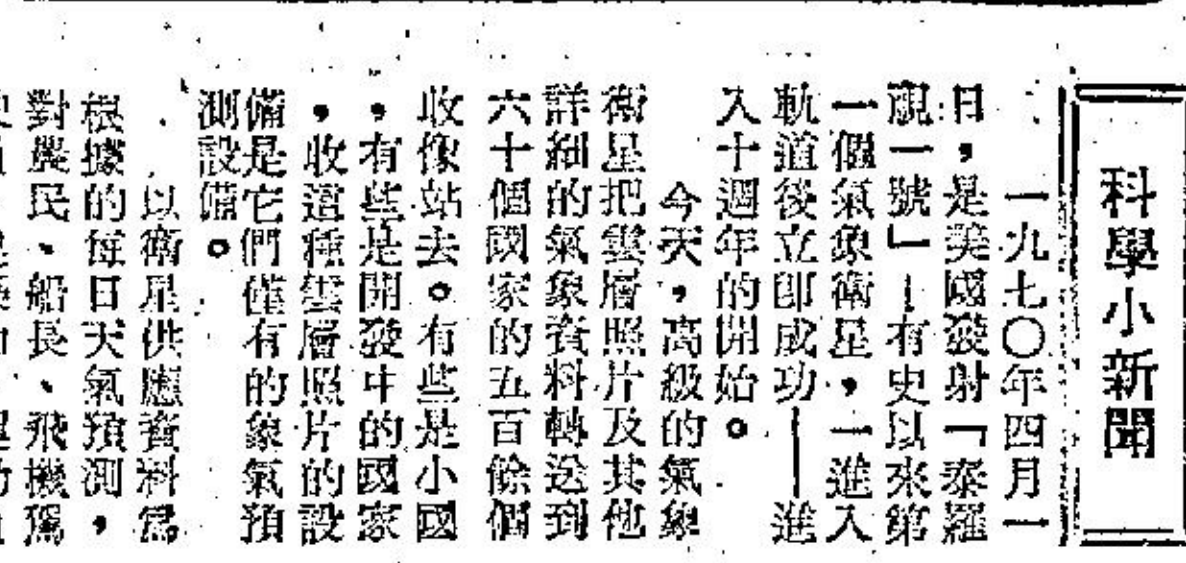 科學小新聞
一九七〇年四月一
日，是美國發射「泰羅
覷一號」—有史以來第
一個氣象衛星，一進入
軌道後立卽成功——進
入十週年的開始。
今天，高級的氣象
衛星把雲層照片及其他
詳細的氣象資料轉送到
六十個國家的五百餘個
收像站去。有些是小國
，有些是開發中的國家
，收這種雲層照片的設
備是它們僅有的象氣預
測設備。
以衛星供應資料爲
根據的每日天氣預測，
對農民、船長、飛機駕